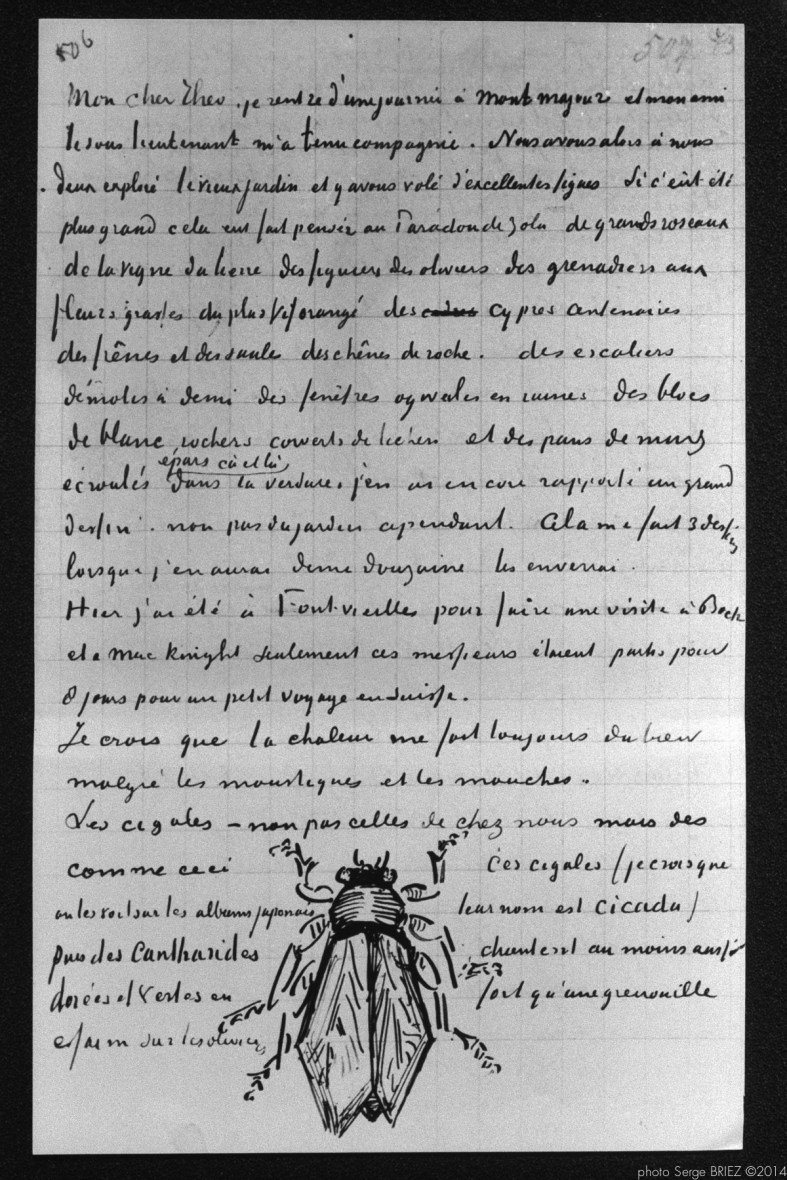 506
507
Mon cher Theo, je rentre d'une journée à Mont majour et mon ami
le sous lieutenant m'a tenu compagnie. Nous avons alors à nous
deux exploré le vieux jardin et y avons volé d'excellentes figues Si c'eut été
plus grand cela eut fait penser au Paradou de Zola de grands roseaux
de la vigne du lierre des figuiers des oliviers des grenadiers aux
fleurs grasses du plus vif orangé des cyprès centenaires
des frênes et des saules des chênes de roche. des escaliers
démolis à demi des fenêtres ogivales en ruines des blocs
de blanc rochers couverts de lichen et des pans de murs
épars çà et là
écroulés dans la verdure, j'en ai encore rapporté un grand
dessin. non pas du jardin cependant. Cela me fait 3 dessins
lorsque j'en aurai demie douzaine les enverrai.
Hier j'ai été à Fontvieilles pour faire une visite à Bock
et a Mac Knight seulement ces messieurs étaient partis pour
8 jours pour un petit voyage en Suisse.
Je crois que la chaleur me fait toujours du bien
malgré les moustiques et les mouches.
Les cigales – non pas celles de chez nous mais des
comme ceci
on les voit sur les albums japonais
puis des Cantharides
dorées et vertes en
essaim sur les oliviers
Ces cigales (je crois que
leur nom est cicada)
chantent au moins aussi
fort qu'une grenouille
photo Serge BRIEZ ©2014